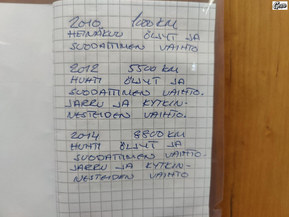 2010 1000 KM
HEINÄKUU ÖLJYT JA
SUODATTIMEN VAIHTO
2012 5500 KM
HUHTI ÖLJYT JA
SUODATTIMEN VAIHTO.
JARRU JA KYTKIN-
NESTEIDEN VAIHTO.
2014 8800 KM
HUHTI ÖLJYT JA
SUODATTIMEN VAIHTO.
JARRU JA KYTKIN-
NESTEIDEN VAIHTO